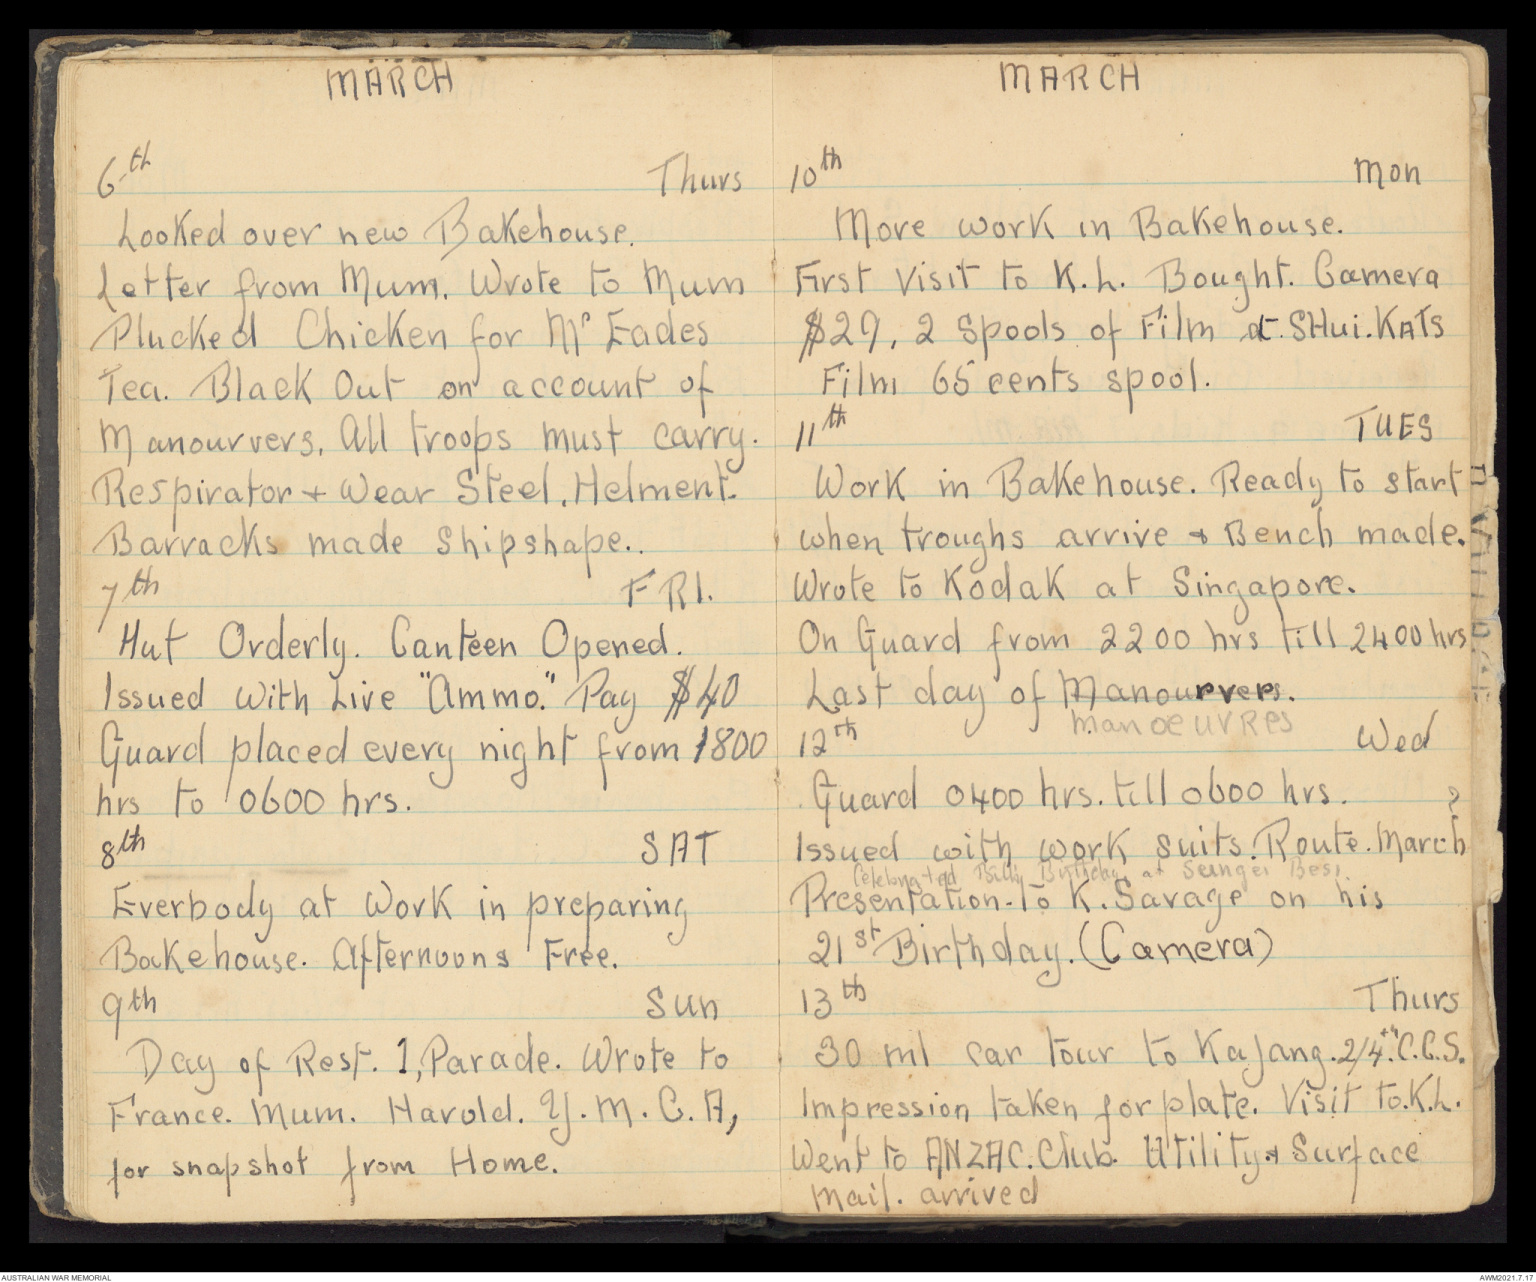 MARCH
6th Thurs
Looked over new Bakehouse.
Letter from Mum. Wrote to Mum
Plucked Chicken for Mr Eades
Tea. Black Out on account of
Manourvers. All troops must carry.
Respirator + Wear Steel. Helment.
Barracks made Shipshape..
7th FRI.
Hut Orderly. Canteen Opened.
Issued with Live "Ammo." Pay $40
Guard placed every night from 1800
hrs to 0600 hrs.
8th SAT
Everbody at Work in preparing
Bakehouse. Afternoons Free.
9th Sun
Day of Rest. 1, Parade. Wrote to
France. Mum. Harold. Y.M.C.A,
for snapshot from Home.
MARCH
10th Mon
More work in Bakehouse.
First Visit to K.L. Bought. Camera
$29, 2 Spools of Film at. SHui.KATS
Film 65 cents spool.
11th TUES
Work in Bakehouse. Ready to start
when troughs arrive + Bench made.
Wrote to Kodak at Singapore.
On Guard from 2200 hrs till 2400 hrs
Last day of Manourvers.
manoeuvres
12th Wed
Guard 0400 hrs. till 0600 hrs. ?
Issued with work suits. Route. March
Celebrated Billy Birthday at Sungei Besi.
Presentation. To K. Savage on his
21st Birthday. (Camera)
13th Thurs
30 ml car tour to Kajang. 2/4th. C.C.S.
Impression taken for plate. Visit to. K.L.
Went to ANZAC. Club. Utility + Surface
Mail. arrived
AUSTRALIAN WAR MEMORIAL
AWM2021.7.17